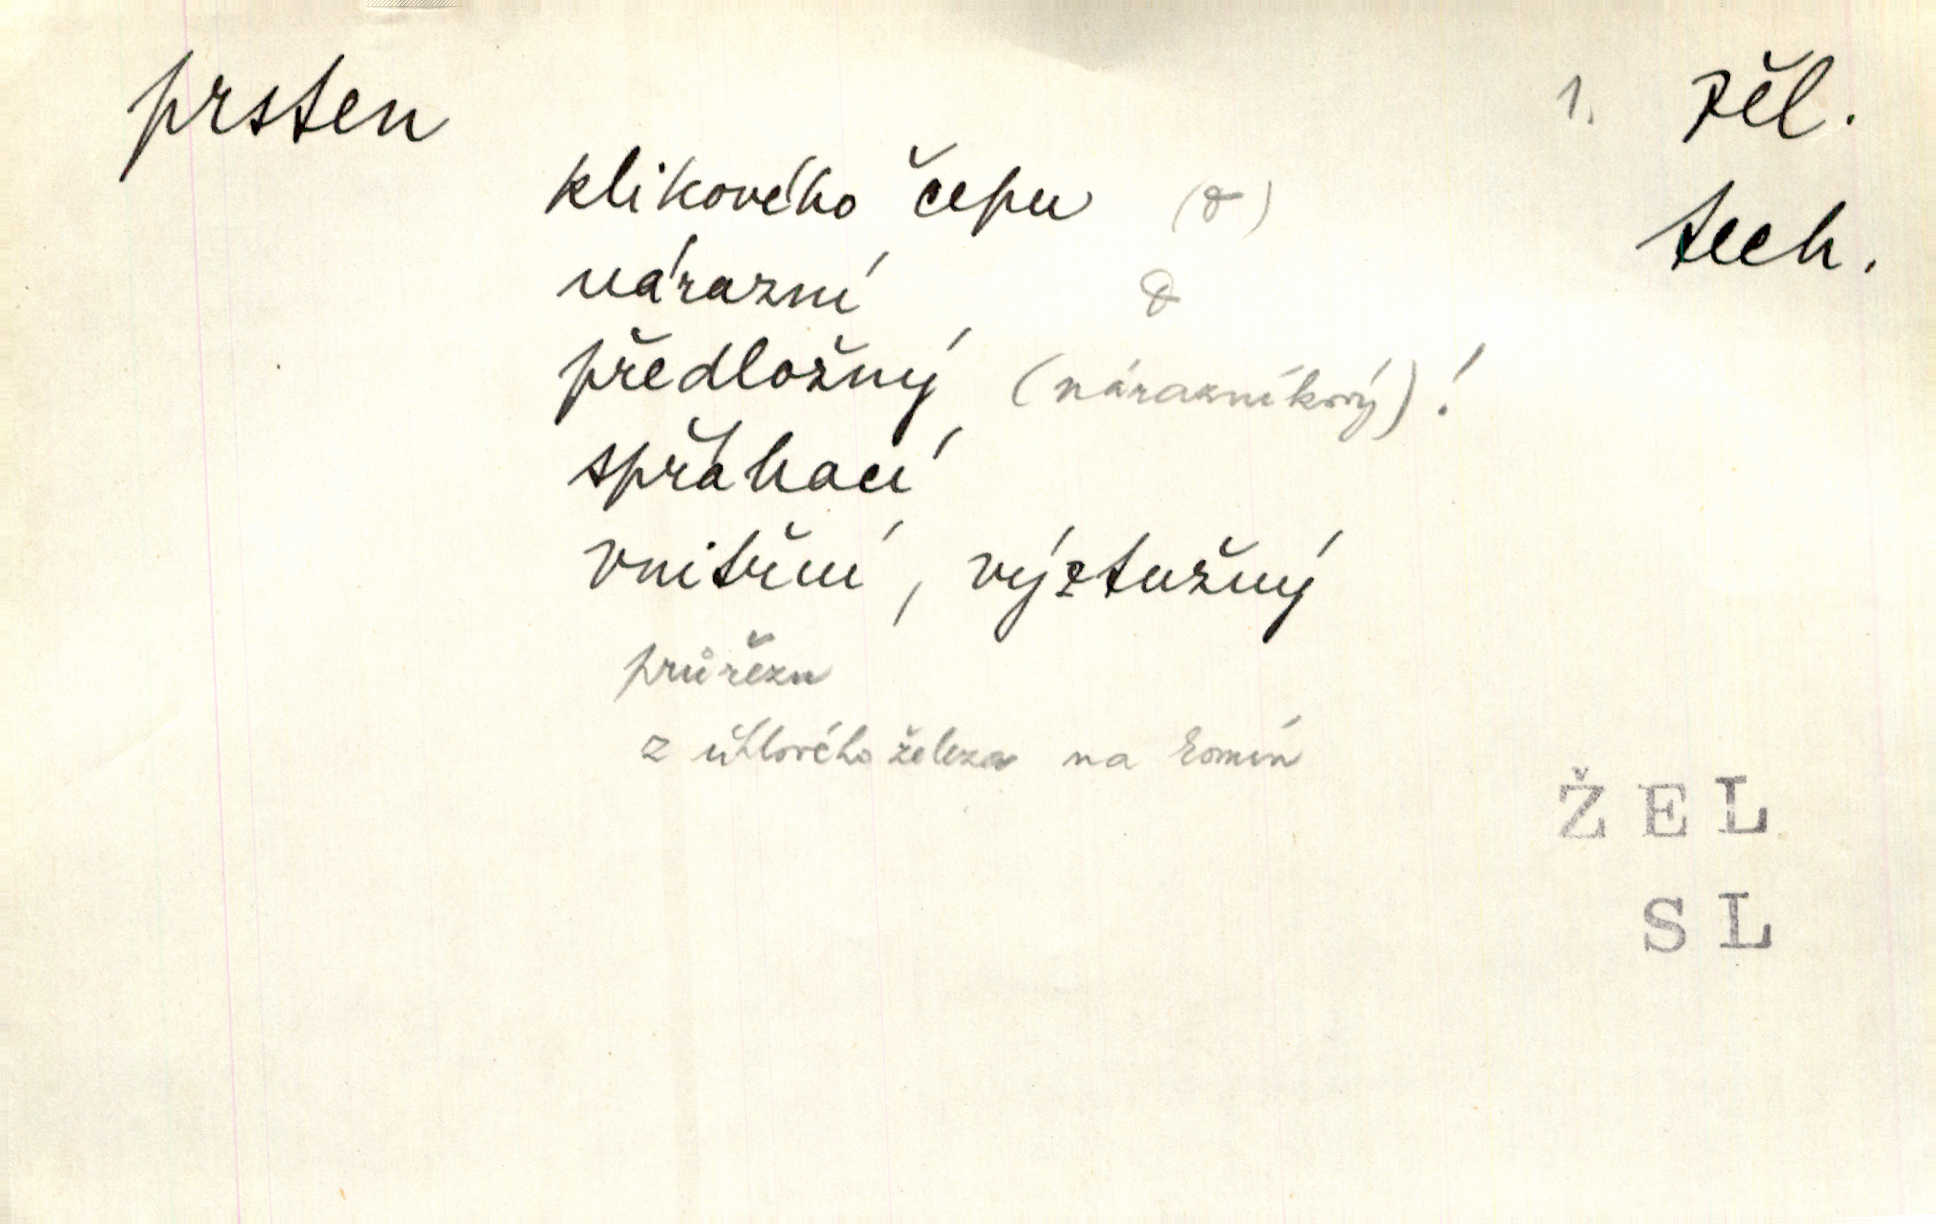 prsten
1. žěl.
klikového čepu
tech.
nárazní
předložný (nárazníkový)!
spřáhací
vnitřní, výztužný
průřezu
z úhlového železa na komín
ŽEL
SL